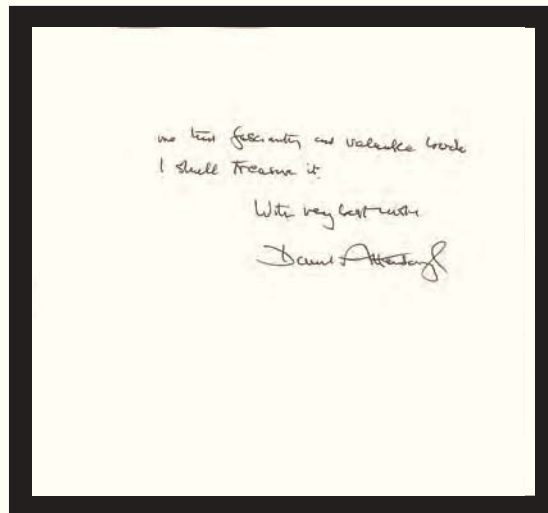 me this fascinating and valuable book
I shall treasure it.
With very best wishes
David Attenborough